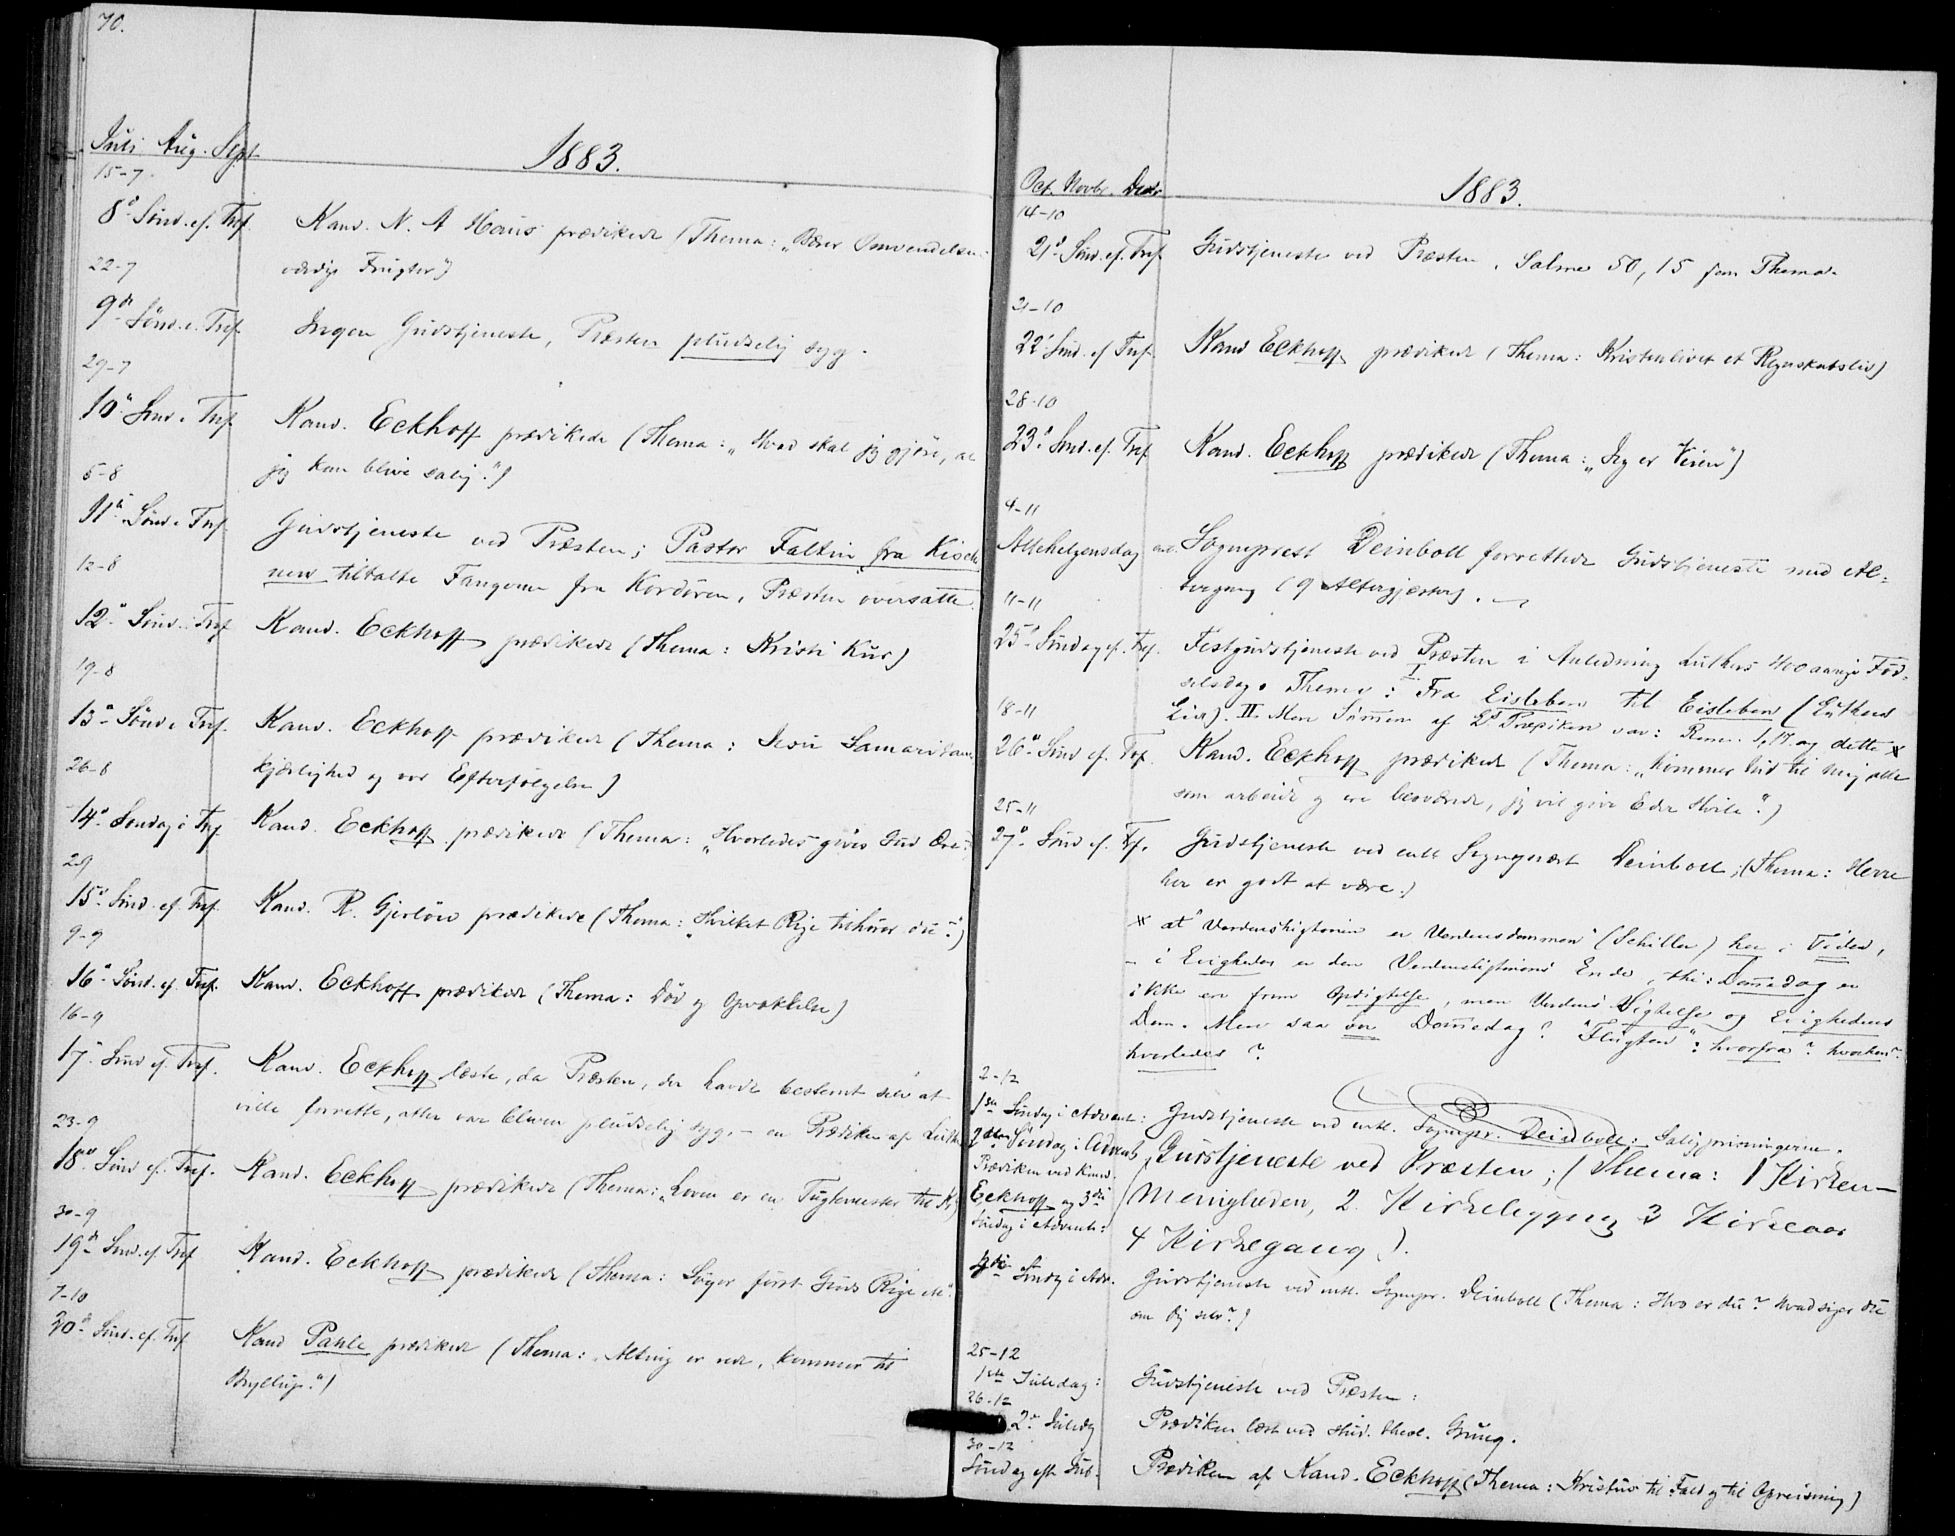 70.
Juli Aug. Sept.
1883.
15-7
8d Sönd. ef. Tref. Kand. N. A Haus prædikede (Thema: „Bærer Omvendelsen:
værdige Frugter")
22-7
9de Sönd. e. Tref. Ingen Gudstjeneste, Præsten pludselig syg.
29-7
10d Sönd. e Tref. Kand. Eckhoff prædikede (Thema: „Hvad skal jeg gjöre, at
jeg kan blive salig.")
5-8
11d Sönd. e Tref. Gudstjeneste ved Præsten; Pastor Faltin fra Kische
new tiltalte Fangerne fra Kordoren, Præsten oversatte.
12-8
12d Sönd. Tref Kand. Eckhoff prædikede (Thema: Kristi Kur)
19-8
13d Sönd e Tref. Kand. Eckhoff prædikede (Thema: Jesu Samaritan
kjærlighed og vor Efterfölgelse)
26-8
14d Sondag e Tref Kand. Eckhoff prædikede (Thema: „Hvorledes gives Gud Ære"
2-9
15d Sönd. ef. Tref. Kand. R. Gjerlöw prædikede (Thema: „Hvilket Rige tilhörer du"?)
9-9
16d Sönd. ef. Tref. Kand. Eckhoff prædikede (Thema: Död og Opvækkelse)
16-9
17d Sönd ef. Tref. Kand. Eckhoff læste, da Præsten, der havde bestemt selv at
ville forrette, atter var bleven pludselig syg, – en Prædiken af Luth.
23-9
18de Sönd ef. Tref. Kand. Eckhoff prædikede (Thema: „Loven er en Tugtemester til Kr)
30-9
19de Sönd. ef. Tref Kand. Eckhoff prædikede (Thema: Söger först Guds Rige etc".
7-10
20d Sönd. ef. Tref Kand Pahle prædikede (Thema: „Alting er rede, kommer til
Bryllup.")
Oct. Novbr. Decbr.
1883.
14-10
21d Sönd. ef. Tref. Gudstjeneste ved Præsten. Salme 50, 15 som Thema.
21-10
22d Sönd. ef Tref. Kand Eckhoff prædikede (Thema: Kristenlivet et Regnskabsliv)
28-10
23d Sönd. ef. Tref Kand. Eckhoff prædikede (Thema: „Jeg er Veien")
4-11
Allehelgensdag Sogneprest Deinboll forrettede Gudstjeneste med Al=
tergang (9 Altergjæster).
11-11
25d Söndag ef. Tref. Festgudstjeneste ved Præsten i Anledning Luthers 400aarige Föd=
selsdag. Thema: I Fra Eisleben til Eisleben (Luthers
Liv). II. Men Summen af Ds Prædiken var: Rom. 1, 17. og dette x
18-11
26d Sönd ef. Tref. Kand. Eckhoff prædikede (Thema: „Kommer hid til mig alle
som arbeide og ere besværede, jeg vil give Eder Hvile.")
25-11
27d Sönd ef. Tref. Gudstjeneste ved entl. Sogneprest Deinboll; (Thema: Herre
her er godt at være.)
x at "Verdenshistorien er Verdensdommen" (Schiller) her i Tiden,
– i Evigheden er den Verdenshistoriens Ende, thi: Dommedag er
ikke en from Opdigtelse, men Verdens Vigtelse og Evighedens
Dom. Men saa en Dommedag? "Flugten": hvorfra? hvorhen?
hvorledes?
2-12
1ste Söndag i Advent: Gudstjeneste ved entl. Sognepr. Deinboll: Saligprisningerne.
2den Söndag i Advent Gudstjeneste ved Præsten; (Thema: 1 Kirken –
Prædiken ved Kand. Menigheden, 2. Kirkebygning 3 Kirkeaar
Eckhoff og 3die
Söndag i Advent: 4 Kirkegang).
4de Söndg i Adv. Gudstjeneste ved entl. Sognepr. Deinboll (Thema: Hvo er du? Hvad siger du
om dig selv?)
25-12
1ste Juledag: Gudstjeneste ved Præsten:
26-12
2d Juledg Prædiken læst ved Stud. theol. Grung.
30-12
Söndag eft Jul. Prædiken af Kand. Eckhoff (Thema: Kristus til Fald og til Opreisning)